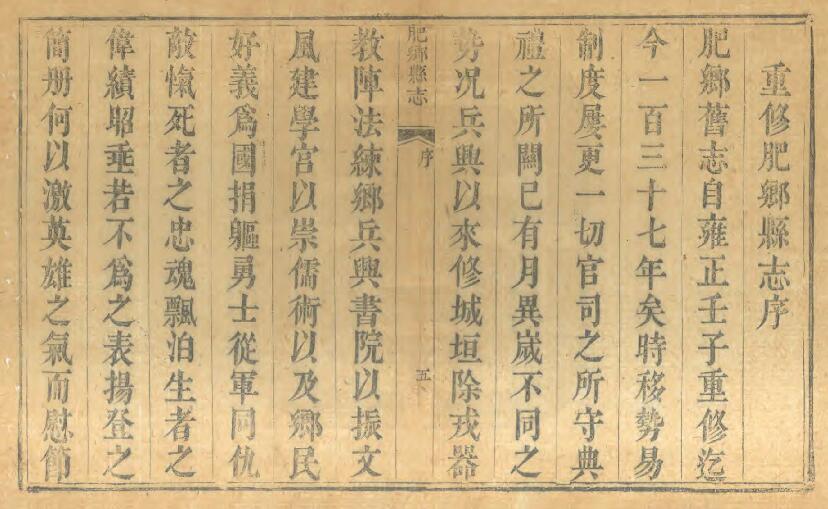 重修肥鄉縣志序
肥鄉舊志自雍正壬子重修迄
今一百三十七年矣時移勢易
制度屢更一切官司之所守典
禮之所關已有月異歲不同之
勢况兵興以來修城垣除戎器
肥鄉縣志
序
五
教陣法練鄉兵興書院以振文
風建學宫以崇儒術以及鄉民
好義爲國捐軀勇士從軍同仇
敵愾死者之忠魂飄泊生者之
偉績昭垂若不爲之表揚登之
簡册何以激英雄之氣而慰節